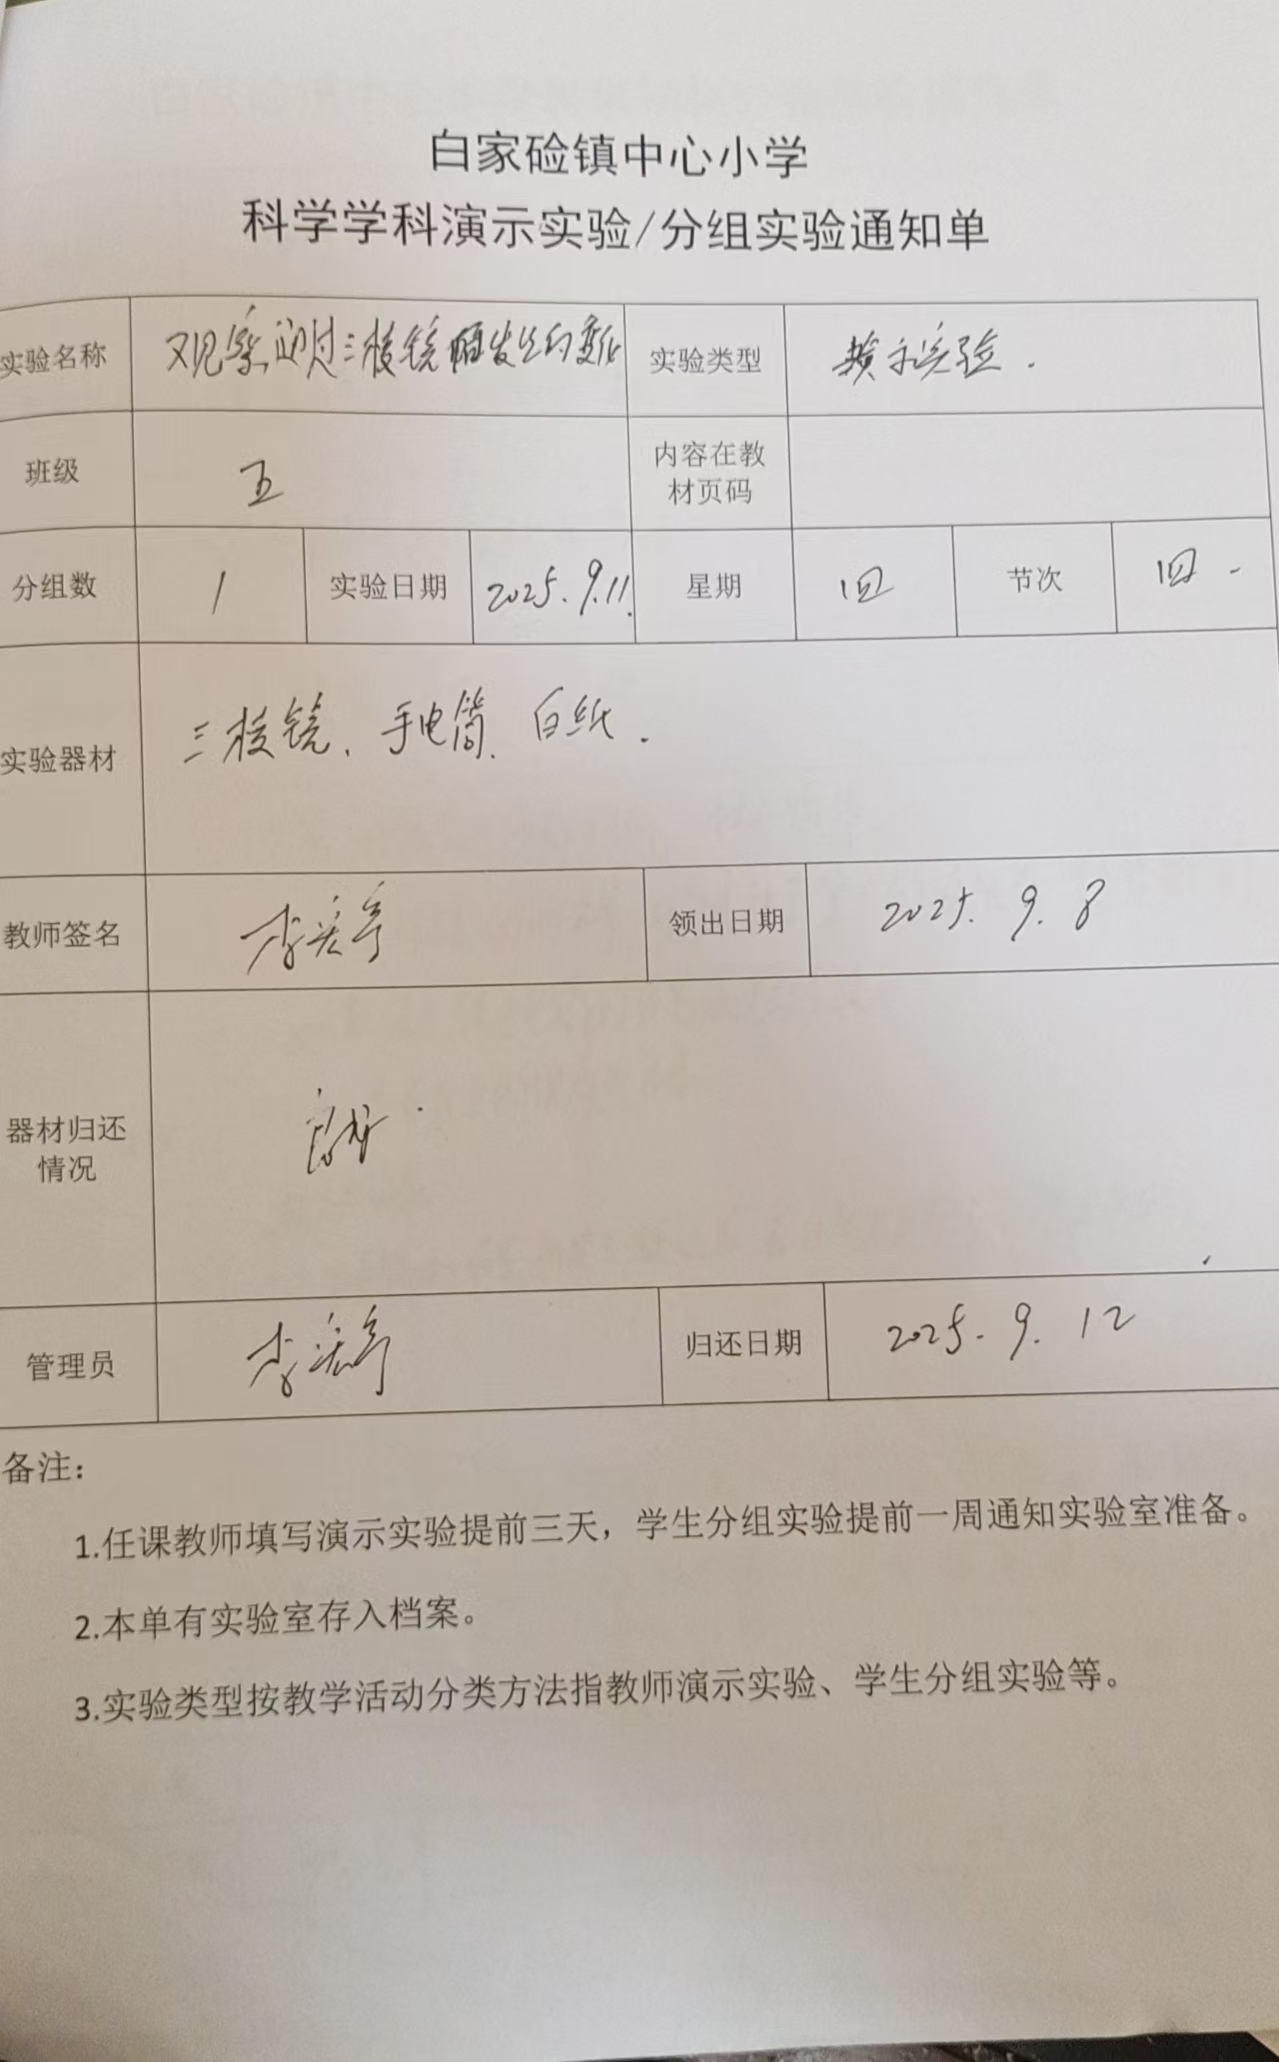 白家硷镇中心小学
科学学科演示实验/分组实验通知单
实验名称 观察通过三棱镜后发生的变化 实验类型 演示实验.
班级 五 内容在教材页码
分组数 1 实验日期 2025.9.11. 星期 四 节次 四
实验器材 三棱镜、手电筒、白纸.
教师签名 李 领出日期 2025.9.8
器材归还情况 良好.
管理员 李 归还日期 2025.9.12
备注：
1.任课教师填写演示实验提前三天，学生分组实验提前一周通知实验室准备。
2.本单有实验室存入档案。
3.实验类型按教学活动分类方法指教师演示实验、学生分组实验等。